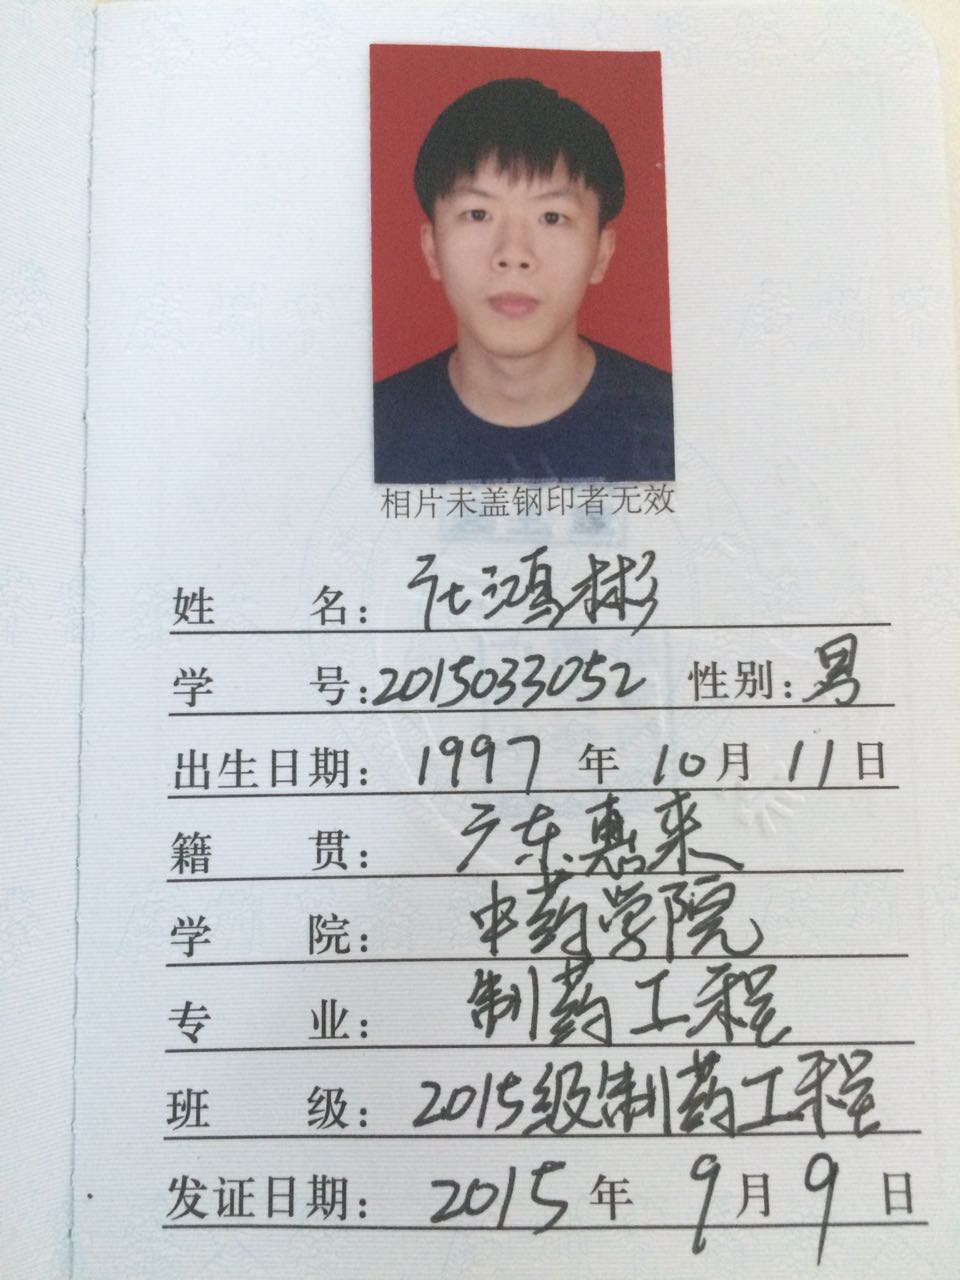 相片未盖钢印者无效
姓 名: 庄鸿彬
学 号: 2015033052 性别: 男
出生日期: 1997 年 10 月 11 日
籍 贯: 广东惠来
学 院: 中药学院
专 业: 制药工程
班 级: 2015级制药工程
发证日期: 2015 年 9 月 9 日